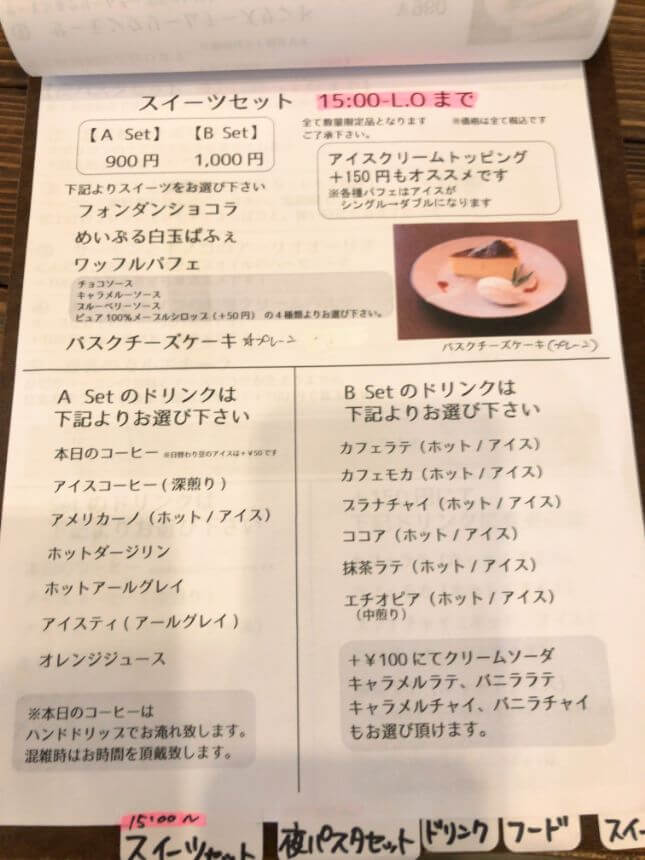 スイーツセット 15:00-L.Oまで
全て数量限定品となります ※価格は全て税込です
ご了承下さい。
【A Set】 【B Set】
900円 1,000円
アイスクリームトッピング
+150円もオススメです
※各種パフェはアイスが
シングル→ダブルになります
下記よりスイーツをお選び下さい
フォンダンショコラ
めいぷる白玉ぱふぇ
ワッフルパフェ
チョコソース
キャラメルーソース
ブルーベリーソース
ピュア100%メープルシロップ(+50円) の4種類よりお選び下さい。
バスクチーズケーキ ☆プレーン
バスクチーズケーキ(プレーン)
A Setのドリンクは
下記よりお選び下さい
本日のコーヒー ※日替わり豆のアイスは+¥50です
アイスコーヒー(深煎り)
アメリカーノ(ホット/アイス)
ホットダージリン
ホットアールグレイ
アイスティ(アールグレイ)
オレンジジュース
※本日のコーヒーは
ハンドドリップでお淹れ致します。
混雑時はお時間を頂戴致します。
B Setのドリンクは
下記よりお選び下さい
カフェラテ(ホット/アイス)
カフェモカ(ホット/アイス)
プラナチャイ(ホット/アイス)
ココア(ホット/アイス)
抹茶ラテ(ホット/アイス)
エチオピア(ホット/アイス)
(中煎り)
+¥100にてクリームソーダ
キャラメルラテ、バニララテ
キャラメルチャイ、バニラチャイ
もお選び頂けます。
15:00~
スイーツセット
夜パスタセット
ドリンク
フード
スイー